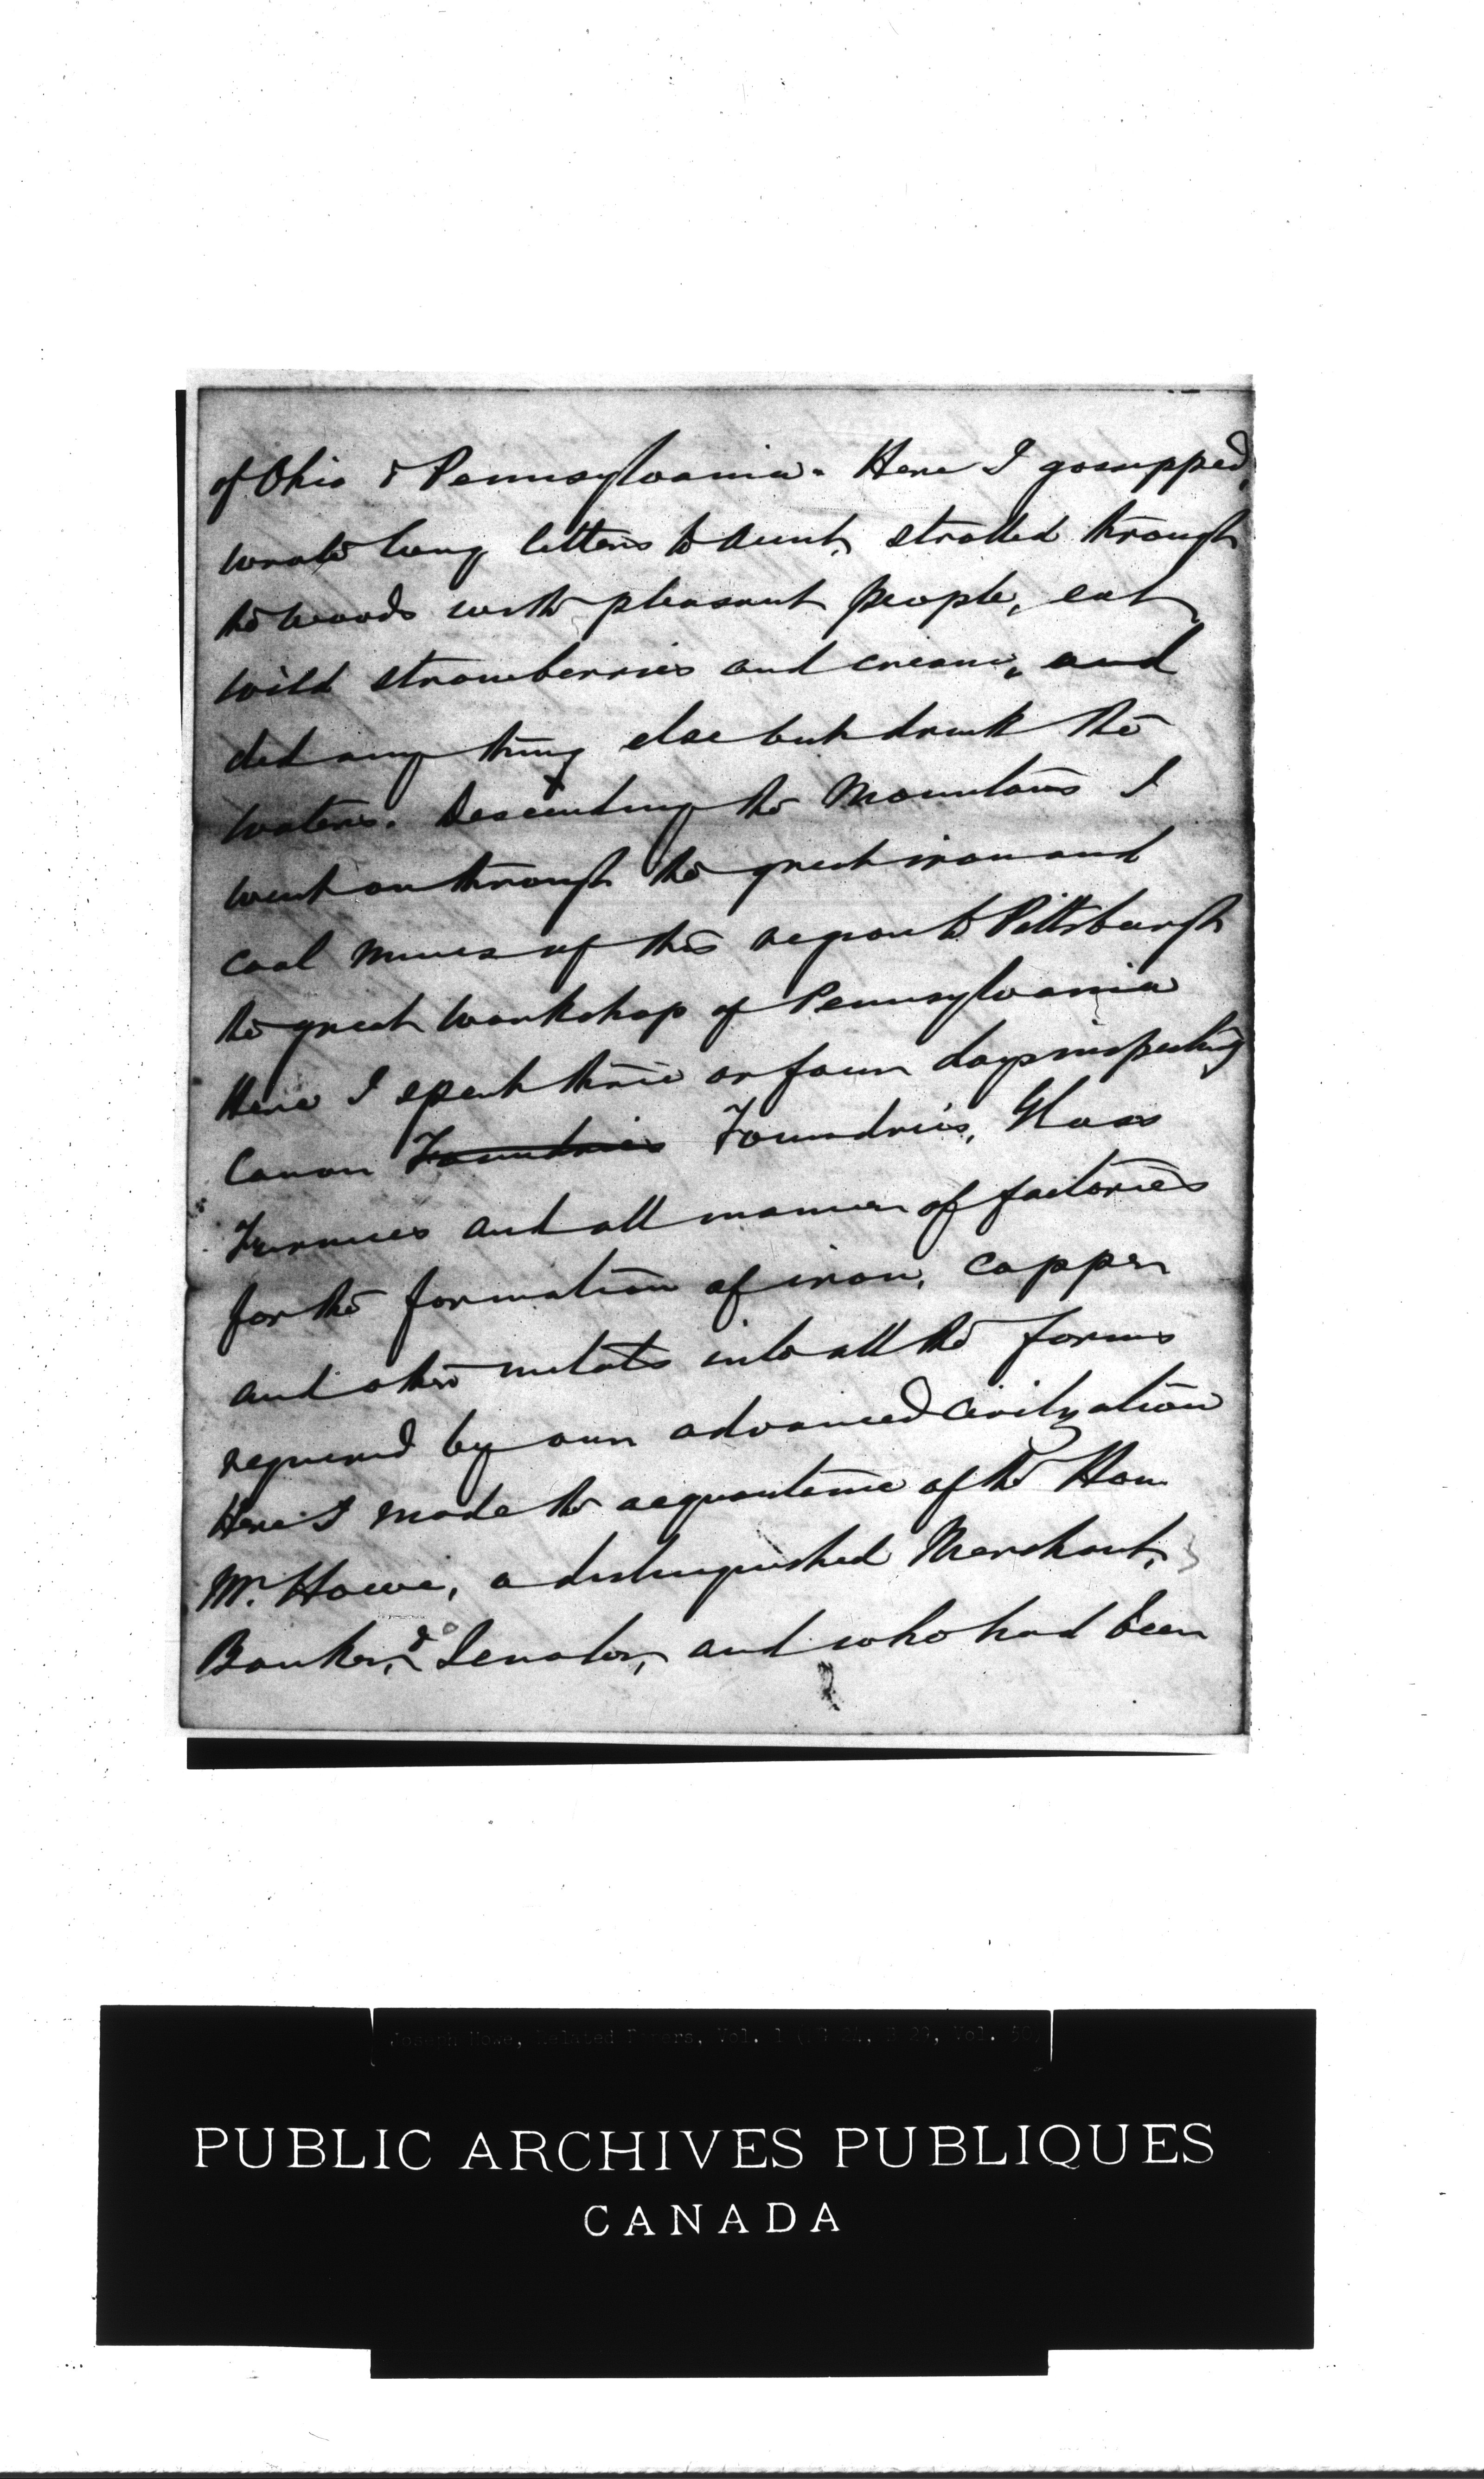 of Ohio & Pennsylvania. Here I gossipped,
wrote long letters to Aunt, strolled through
the woods with pleasant people, eat
wild strawberries and cream, and
did any thing else but drink the
waters. Descending the Mountains I
went on through the great iron and
coal mines of this region to Pittsburgh
the great workshop of Pennsylvania
Here I spent three or four days inspecting
Canon Foundries Foundries, Glass
Furnaces and all manner of factories
for the formation of iron, copper
and other metals into all the forms
required by our advanced civilyzation
Here I made the acquaintance of the Hon
Mr. Howe, a distinguished Merchant,
Banker, & Senator, and who had been
Joseph Howe, Related Papers, Vol. 1 (MG 24, B 29, Vol. 50)
PUBLIC ARCHIVES PUBLIQUES
CANADA